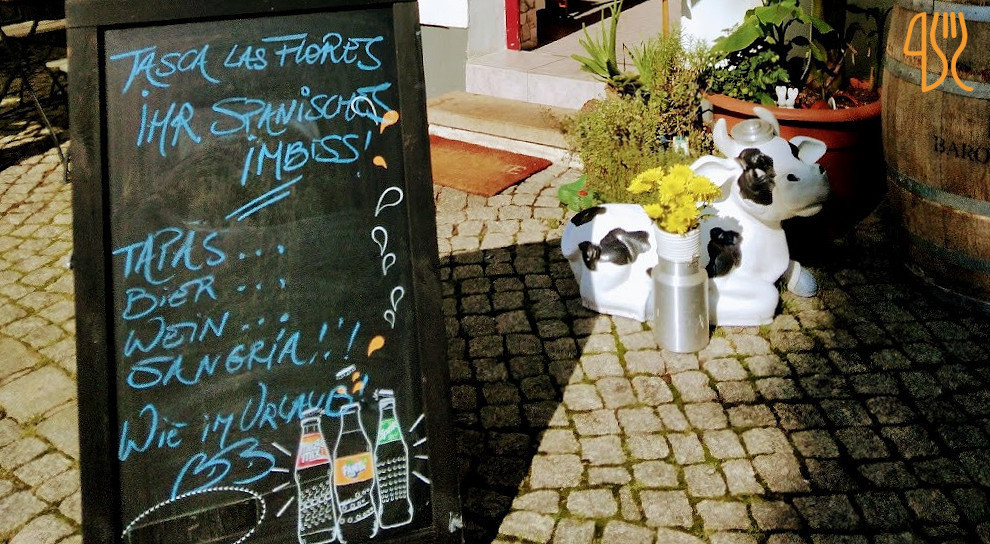 TASCA LAS FLORES
IHR SPANISCHES
IMBISS!
TAPAS...
BIER...
WEIN...
SANGRIA!!!
WIE IM URLAUB!
BARO